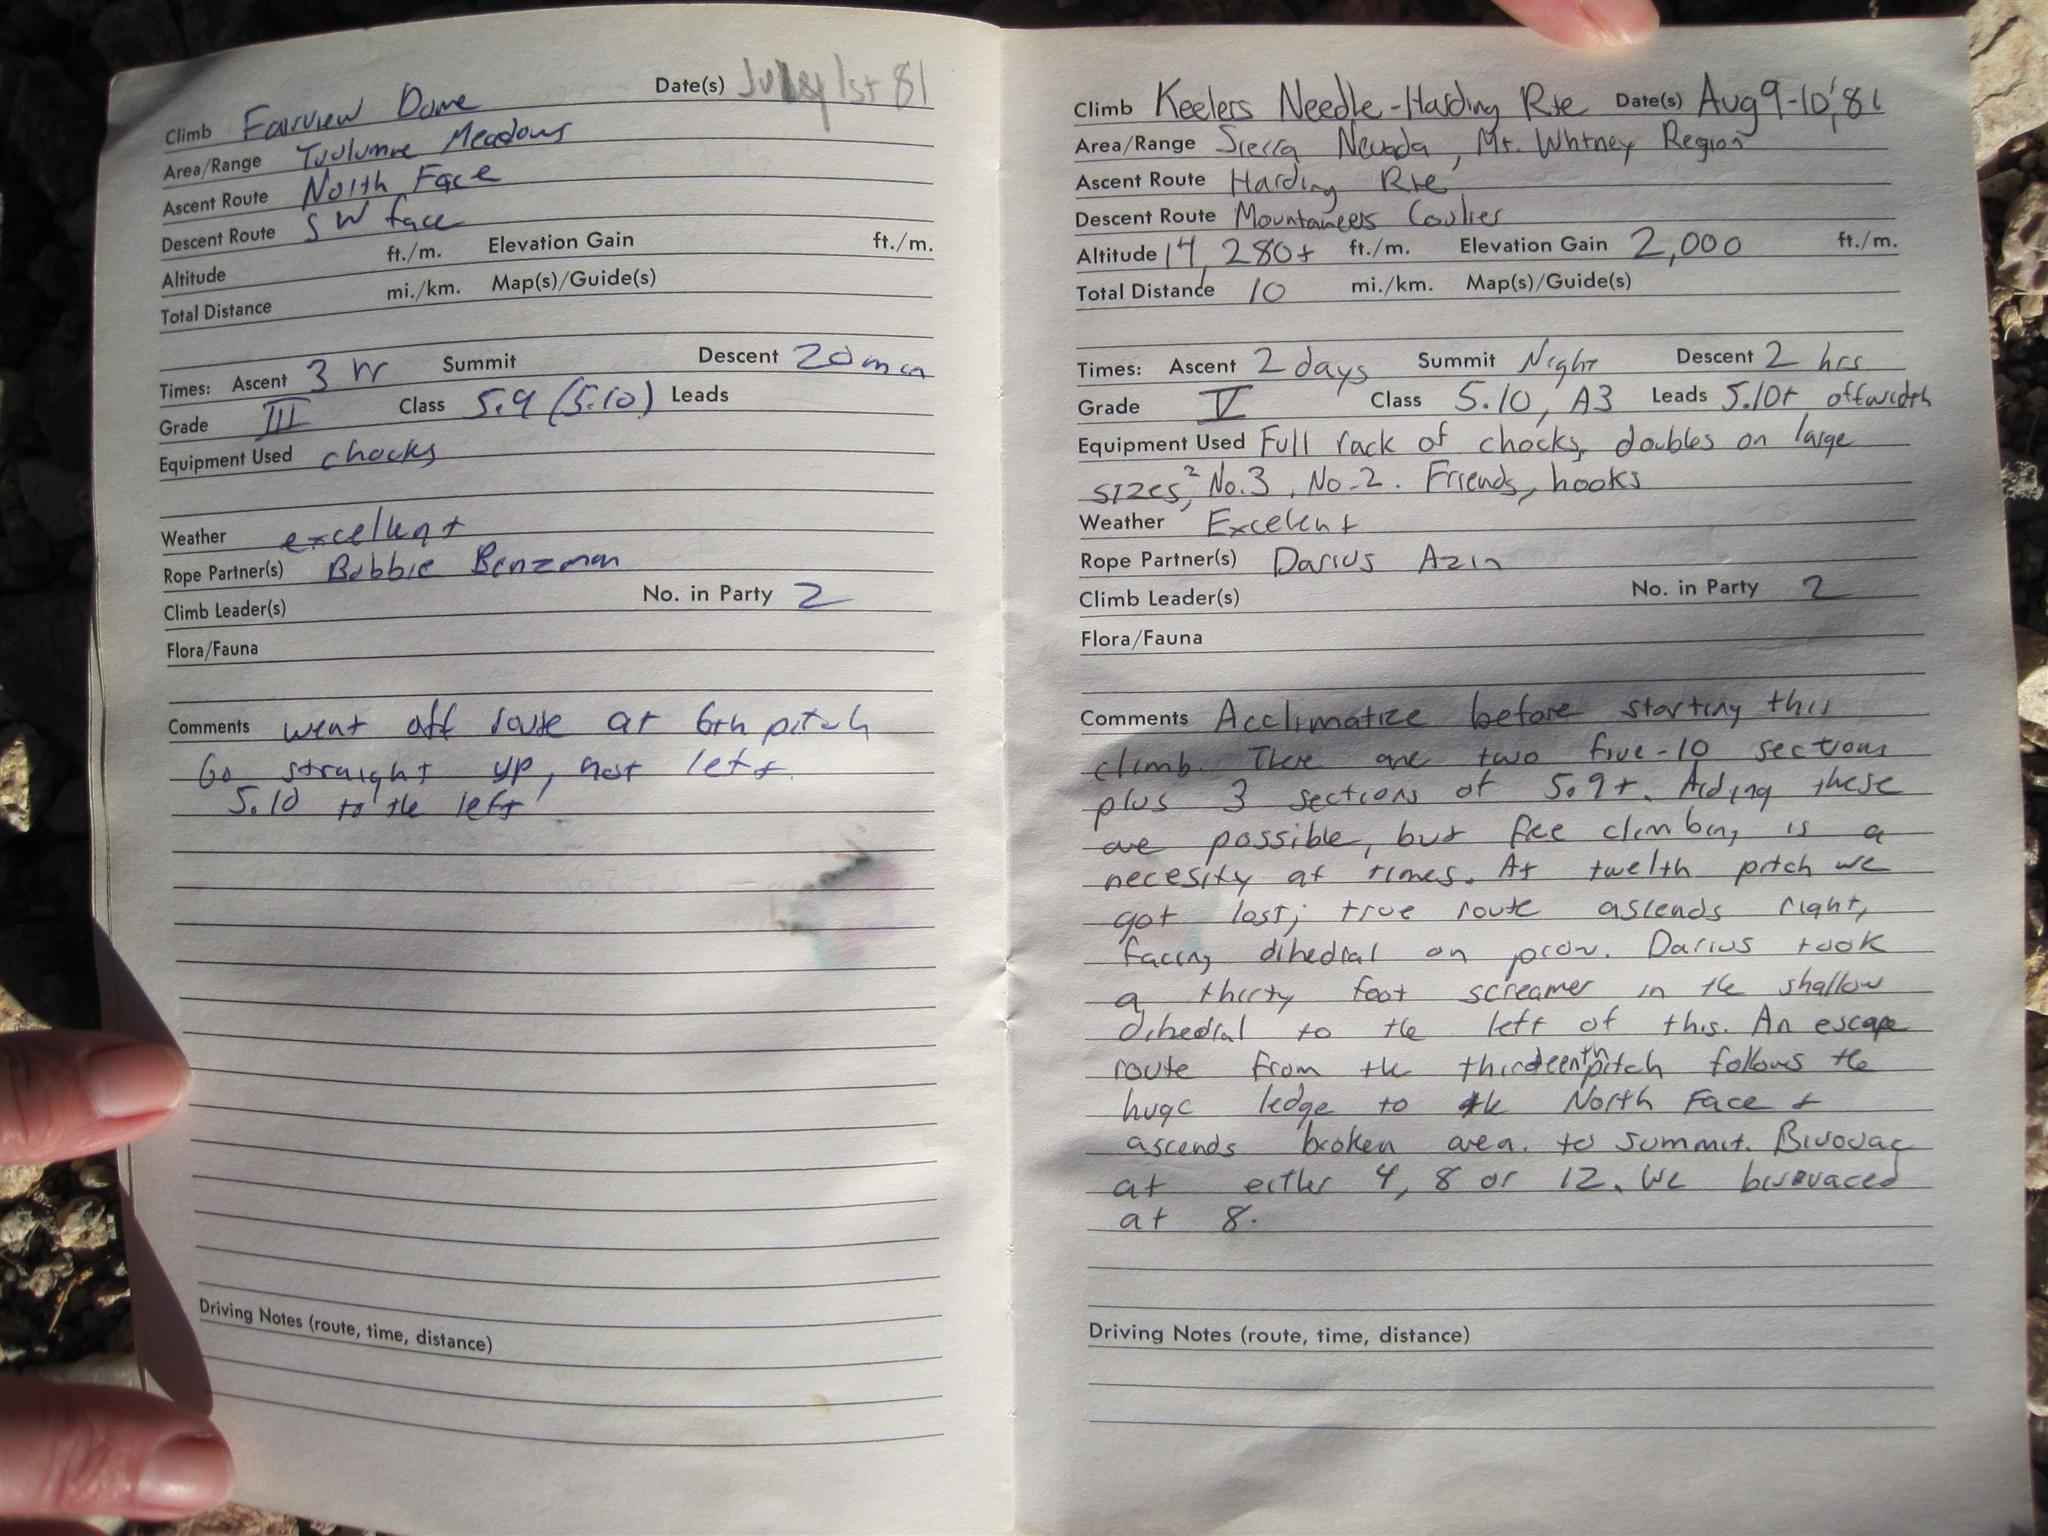 Date(s) July 1st 81
Climb Fairview Dome
Area/Range Tuolumne Meadows
Ascent Route North Face
Descent Route SW face
Altitude ft./m. Elevation Gain ft./m.
Total Distance mi./km. Map(s)/Guide(s)
Times: Ascent 3 hr Summit Descent 20 min
Grade III Class 5.9 (5.10) Leads
Equipment Used chocks
Weather excellent
Rope Partner(s) Bobbie Benzman
Climb Leader(s) No. in Party 2
Flora/Fauna
Comments went off route at 6th pitch
Go straight up, not left.
5.10 to the left
Driving Notes (route, time, distance)
Climb Keelers Needle-Harding Rte Date(s) Aug 9-10, '81
Area/Range Sierra Nevada, Mt. Whitney Region
Ascent Route Harding Rte
Descent Route Mountaineers Coulier
Altitude 14,280+ ft./m. Elevation Gain 2,000 ft./m.
Total Distance 10 mi./km. Map(s)/Guide(s)
Times: Ascent 2 days Summit Night Descent 2 hrs
Grade V Class 5.10, A3 Leads 5.10+ offwidth
Equipment Used Full rack of chocks, doubles on large
sizes, 2 No.3, No.2. Friends, hooks
Weather Excelent
Rope Partner(s) Darius Azin
Climb Leader(s) No. in Party 2
Flora/Fauna
Comments Acclimatize before starting this
climb. There are two five-10 sections
plus 3 sections of 5.9+. Aiding these
are possible, but free climbing is a
necesity at times. At twelth pitch we
got lost; true route ascends right,
facing dihedral on prow. Darius took
a thirty foot screamer in the shallow
dihedral to the left of this. An escape
route from the thirdeenth pitch follows the
huge ledge to the North Face +
ascends broken area. to summit. Bivouac
at either 4, 8 or 12. We bivouaced
at 8.
Driving Notes (route, time, distance)